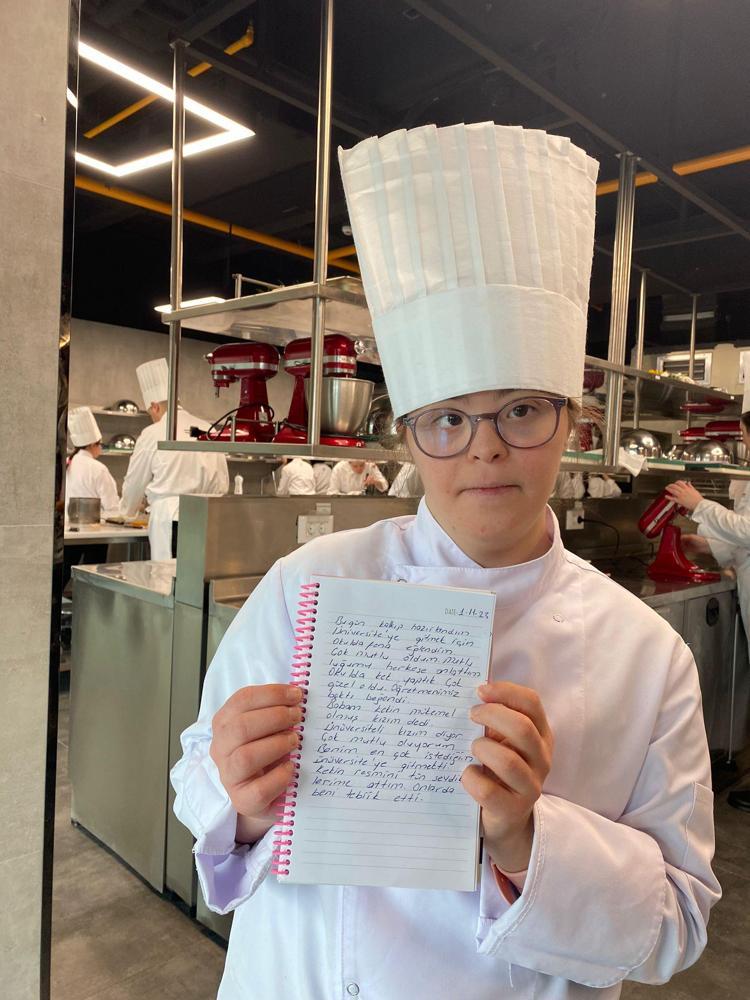 DATE: 1.11.23
Bugün kalkıp hazırlandım
Üniversite'ye gitmek için
Okulda fena eplendim
Çok mutlu oldum mutlu
luğumu herkese anlattım
Okulda kek yaptık Çok
güzel oldu. Öğretmenimiz
baktı beğendi.
Babam kekin mükemel
olmuş kızım dedi.
Ünüversiteli kızım diyor
Çok mutlu oluyorum
Benim en çok istediğim
Ünüversite'ye gitmekti.
Kekin resmini tün sevdik
lerime attım. Onlarda
beni teblik etti.